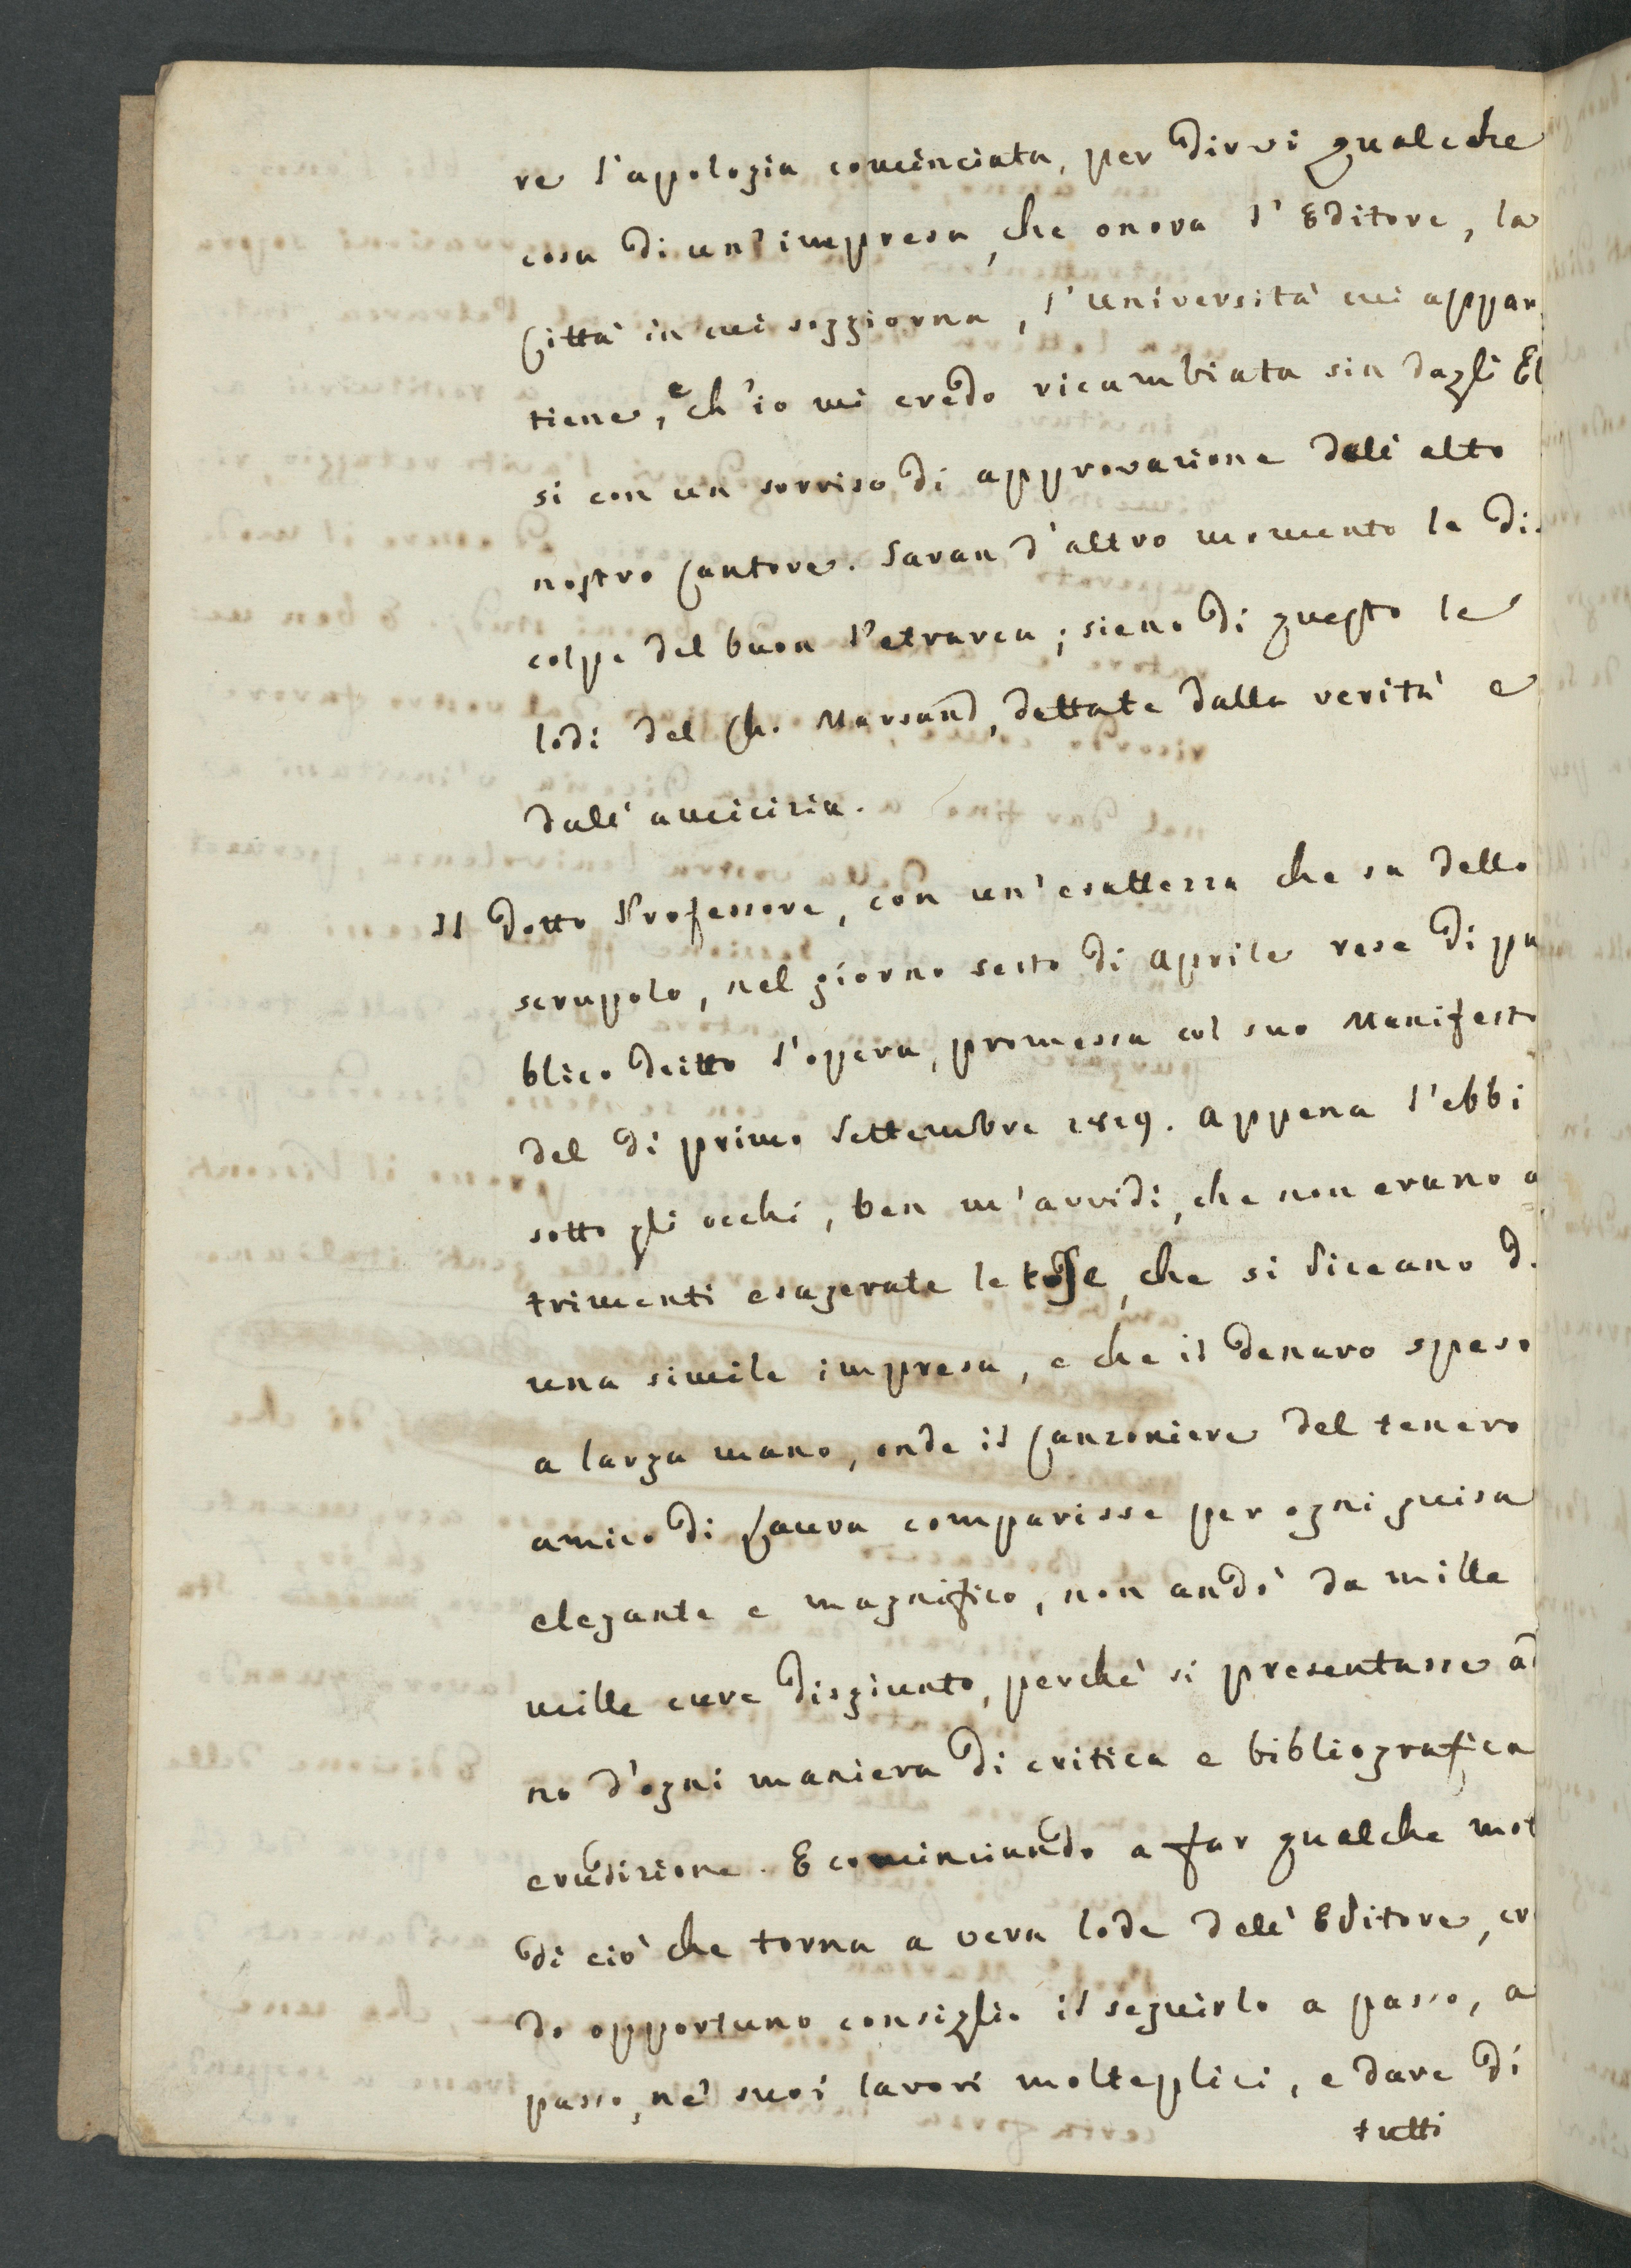 re l'apologia cominciata, per dirvi qualche
cosa di un'impresa, che onora l'Editore, la
Città in cui soggiorna, l'università cui appar
tiene, e ch'io mi credo ricambiata sin dagli El
si con un sorriso di approvazione dall' alto
nostro Cantore. Saran d'altro momento le di
colpe del buon Petrarca; sieno di questo le
lodi del Ch. Marsand, dettate dalla verità e
dall' amicizia.
Il dotto Professore, con un'esattezza che sa dello
scrupolo, nel giorno sesto di Aprile rese di pu
blico dritto l'opera, promessa col suo Manifesto
del dì primo Settembre 1819. Appena l'ebbi
sotto gli occhi, ben m'avvidi, che non erano a
trimenti esagerate le che si diceano d
una simile impresa, e che il denaro speso
a larga mano, onde il Canzoniere del tenero
amico di Laura comparisse per ogni guisa
elegante e magnifico, non andò da mille
mille cure disgiunto, perchè si presentasse ad
no d'ogni maniera di critica e bibliografica
erudizione. E cominciando a far qualche mot
di ciò che torna a vera lode dell' Editore, cr
do opportuno consiglio il seguirlo a passo, a
passo, ne' suoi lavori molteplici, e dare di
tutti